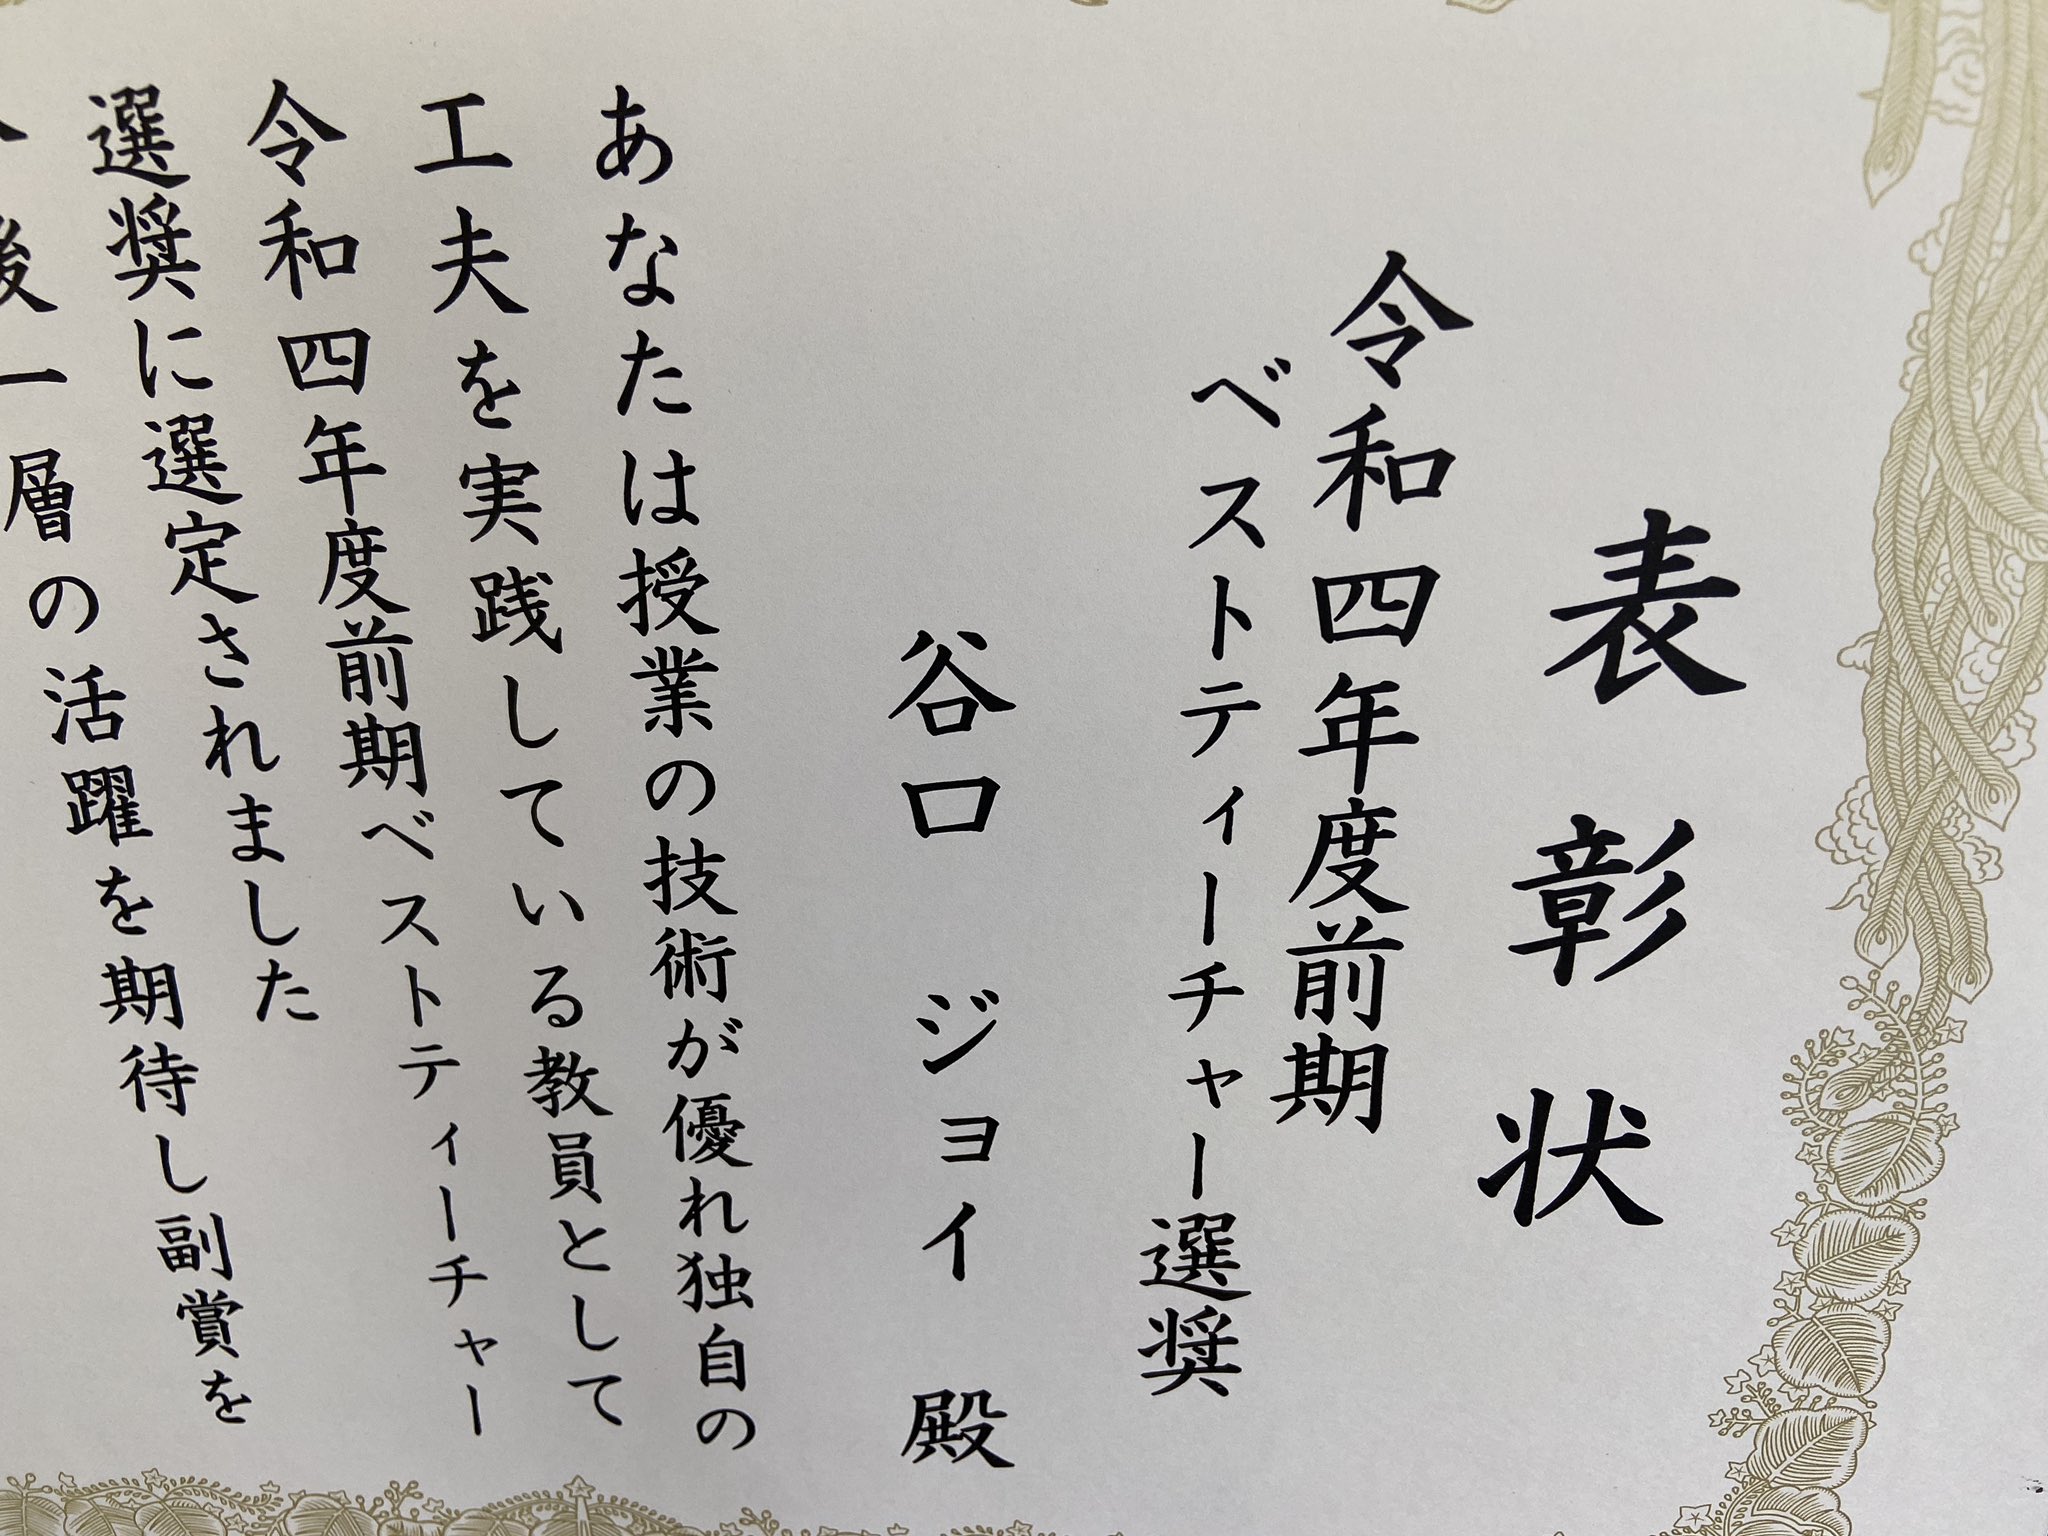 表彰状
令和四年度前期
ベストティーチャー選奨
谷口 ジョイ 殿
あなたは授業の技術が優れ独自の
工夫を実践している教員として
令和四年度前期ベストティーチャー
選奨に選定されました
後一層の活躍を期待し副賞を